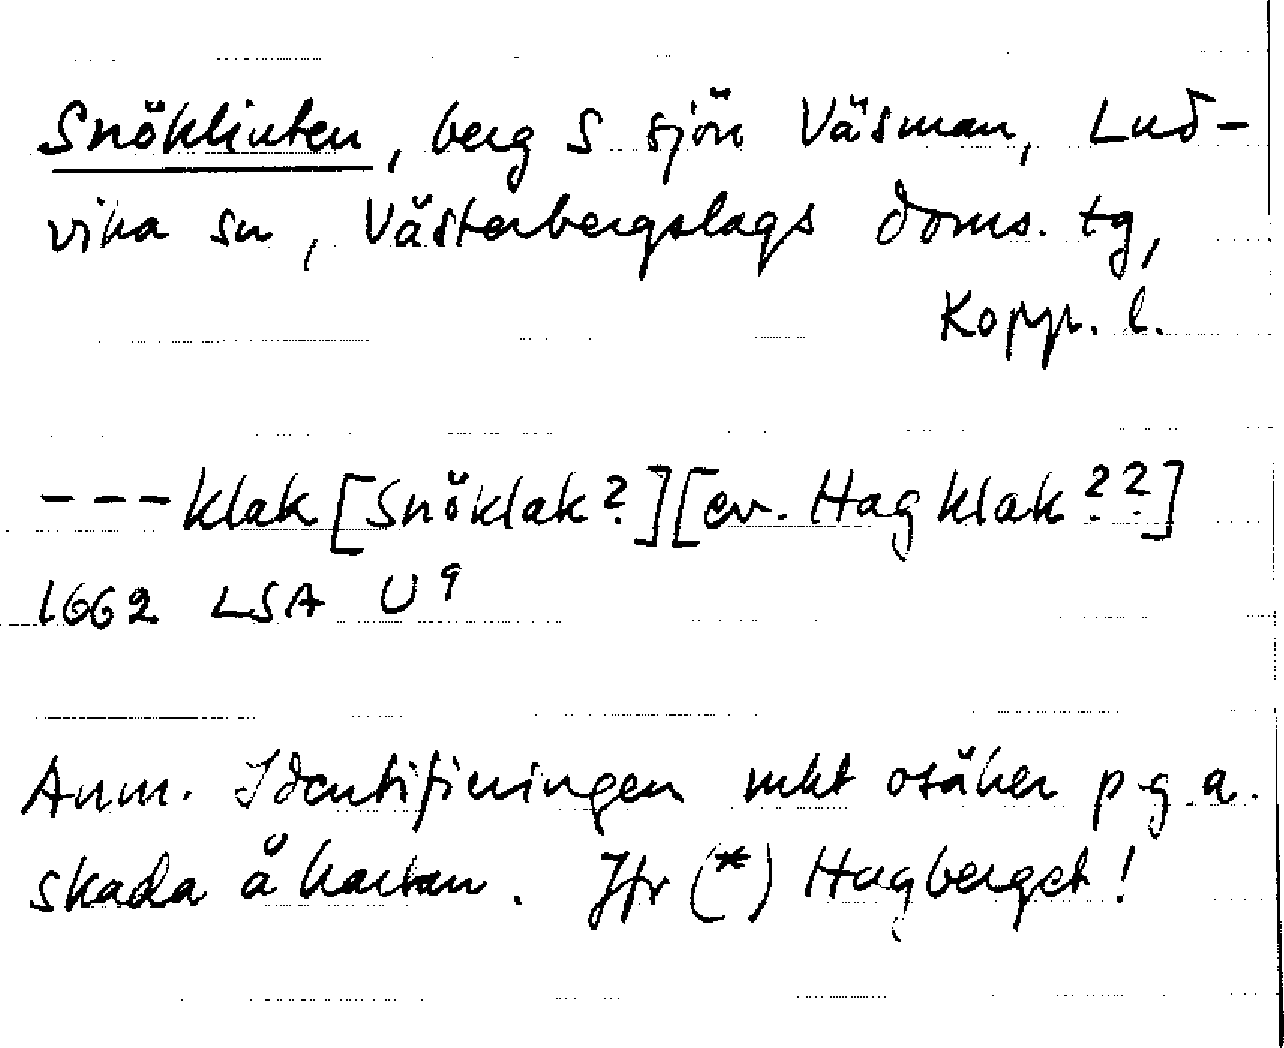 Snöklinten, berg S sjön Väsman, Lud-
vika sn, Västerbergslags doms. tg,
Kopp. l.
---klak [Snöklak?][ev. Hagklak??]
1662 LSA U9
Anm. Identifieringen mkt osäker p g a.
skada å kartan. Jfr (*) Hagberget!